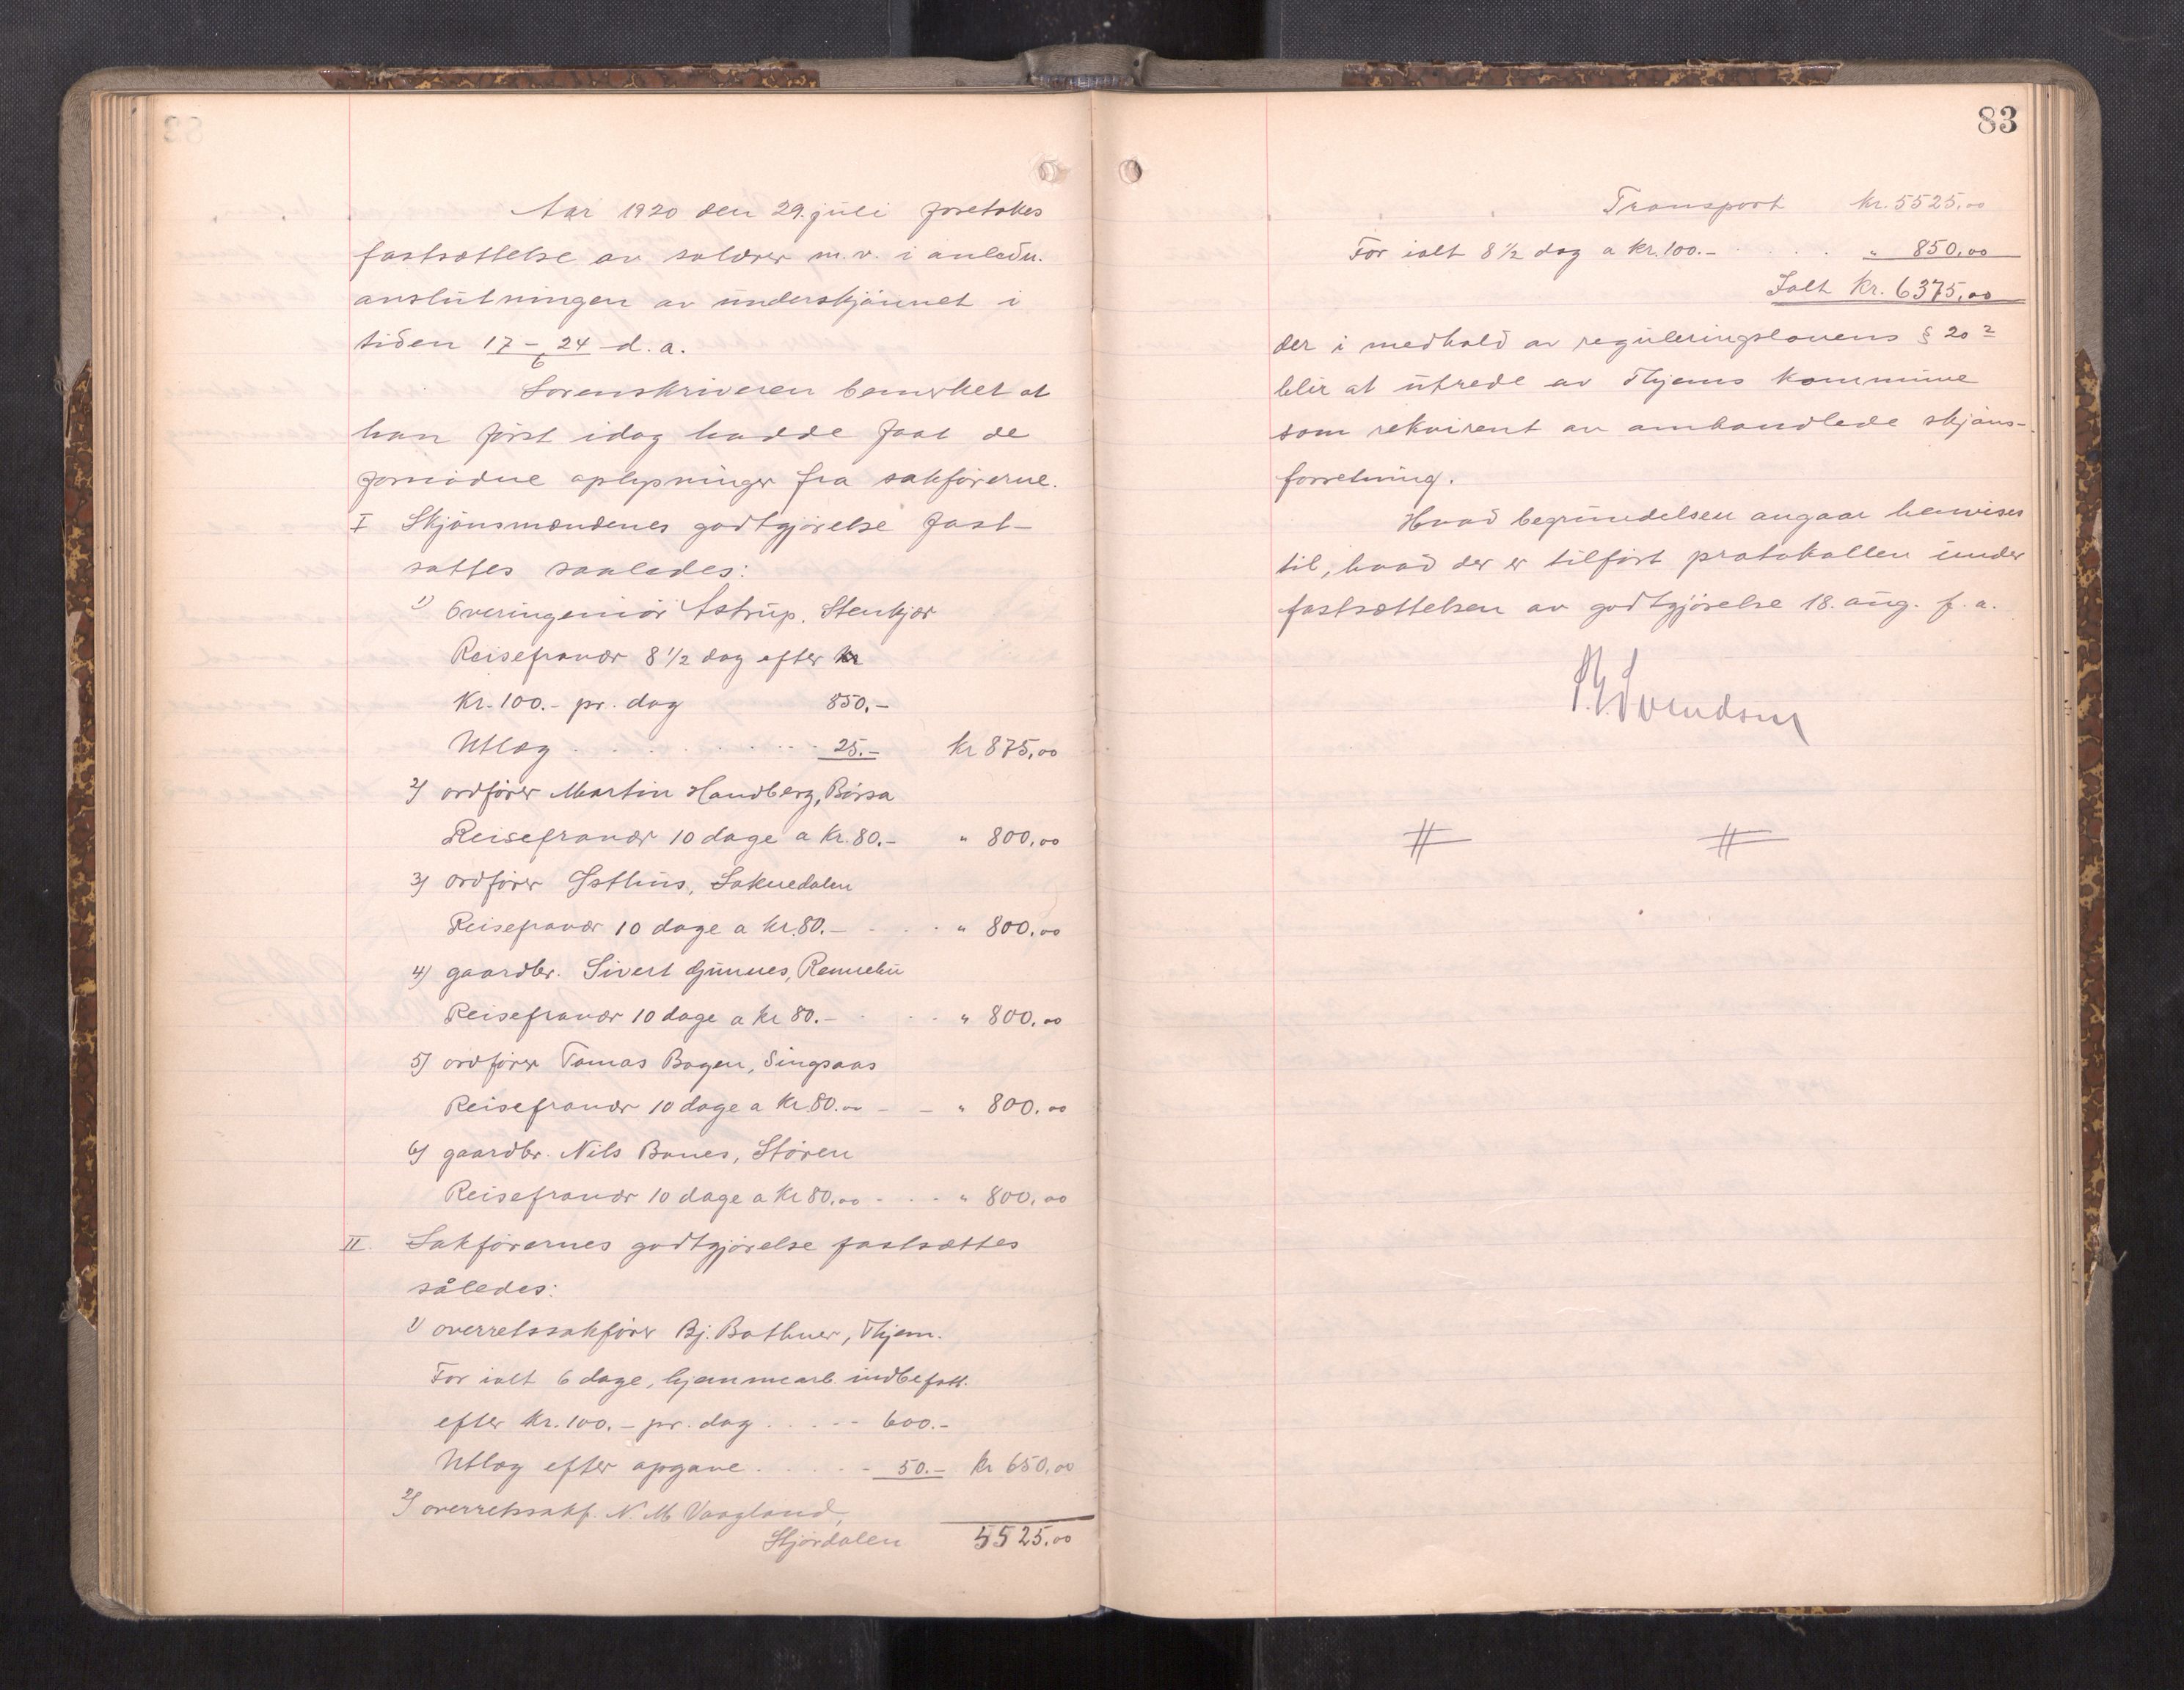 Aar 1920 den 29. juli foretokes
fastsættelse av salærer m.v. i anledn.
avslutningen av underskjønnet i
tiden 17 – 24/6 d.a.
Sorenskriveren bemerket at
han først idag hadde faat de
fornødne oplysninger fra sakførerne.
I Skjønsmændenes godtgjørelse fast-
sattes saaledes:
1) Overingeniør Astrup, Stenkjær
Reisefravær 8 1/2 dag efter kr
Kr. 100.- pr. dag 850.-
Utlæg . . . . . . . 25.- kr 875,00
2) ordfører Martin Handberg, Børsa
Reisefravær 10 dage a Kr. 80.- " 800,00
3) ordfører Østhus, Soknedalen
Reisefravær 10 dage a kr. 80.- - . . " 800,00
4) gaardbr. Sivert Gunnes, Rennebu
Reisefravær 10 dage a kr 80.- . . . " 800,00
5) ordfører Tomas Bogen, Singsaas
Reisefravær 10 dage a kr. 80.00 - - " 800,00
6) gaardbr. Nils Bones, Støren
Reisefravær 10 dage a Kr 80,00 . . . " 800,00
II. Sakførernes godtgjørelse fastsættes
således:
1) overretssakfører Bj. Bothner, Thjem.
For ialt 6 dage, hjemmearb. indbefatt.
efter Kr. 100.- pr. dag . . . . - 600.-
Utlæg efter opgave . . . . - 50.- kr 650,00
2) overretssakf. N. M. Vaagland,
Stjørdalen 5525,00
83
Transport kr. 5525,00
For ialt 8 1/2 dag a kr. 100.- . . . . " 850,00
Ialt Kr. 6375,00
der i medhold av reguleringslovens § 20 2
blir at utrede av Thjems kommune
som rekvirent av omhandlede skjøns-
forretning.
Hvad begrundelsen angaar henvises
til, hvad der er tilført protokollen under
fastsættelsen av godtgjørelse 18. aug. f.a.
Svendsen